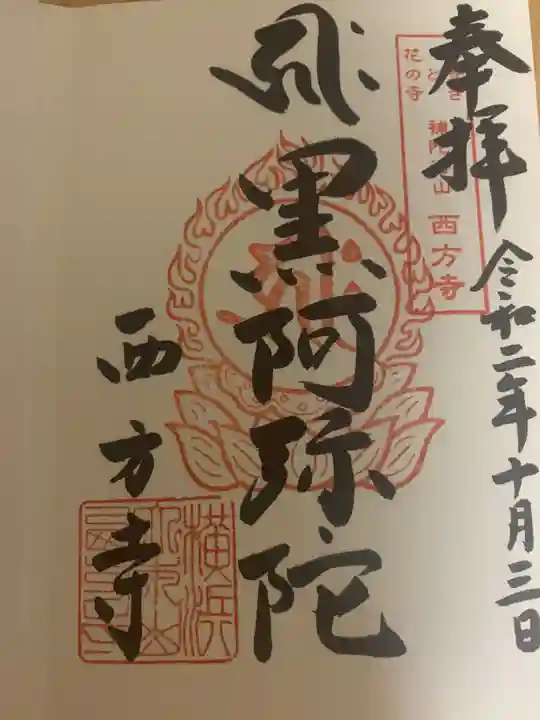 奉拝
令和二年十月三日
花の寺
補陀洛山 西方寺
黒阿弥陀
西方寺
横浜